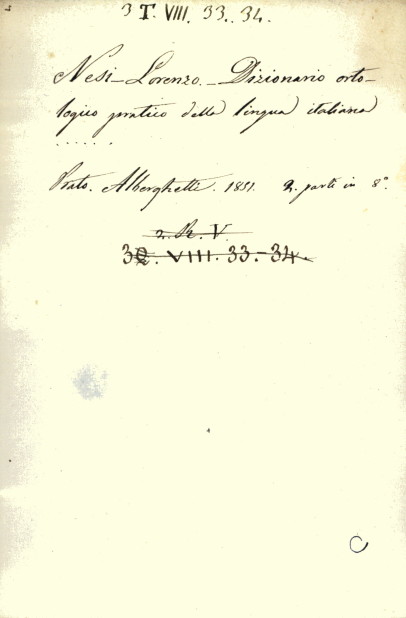 3 T. VIII. 33. 34.
Nesi - Lorenzo. - Dizionario orto-
logico pratico della lingua italiana
. . . . . .
Prato. Alberghetti. 1851. 2. parti in 8°.
2. R. V
32. VIII. 33. - 34.
C